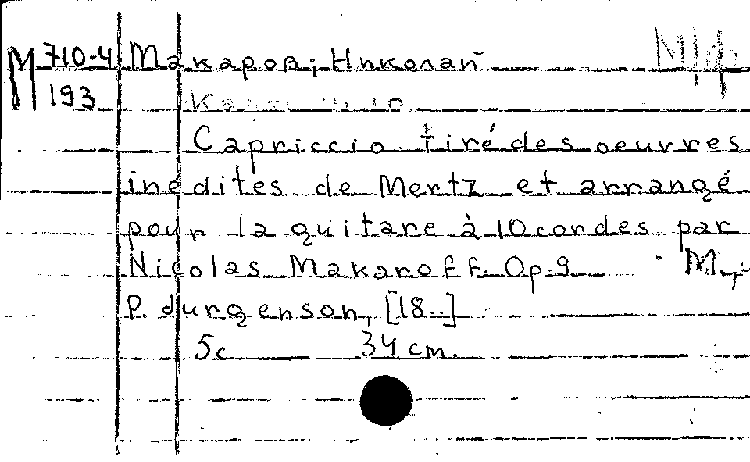 М 710-4 Макаров, Николай М/ф
193
Capriccio tiré des oeuvres
inédites de Mertz et arrangé
pour la guitare à 10 cordes par
Nicolas Makaroff. Op. 9 М.,
P. Jurgenson, [18..]
5с 34 cm.